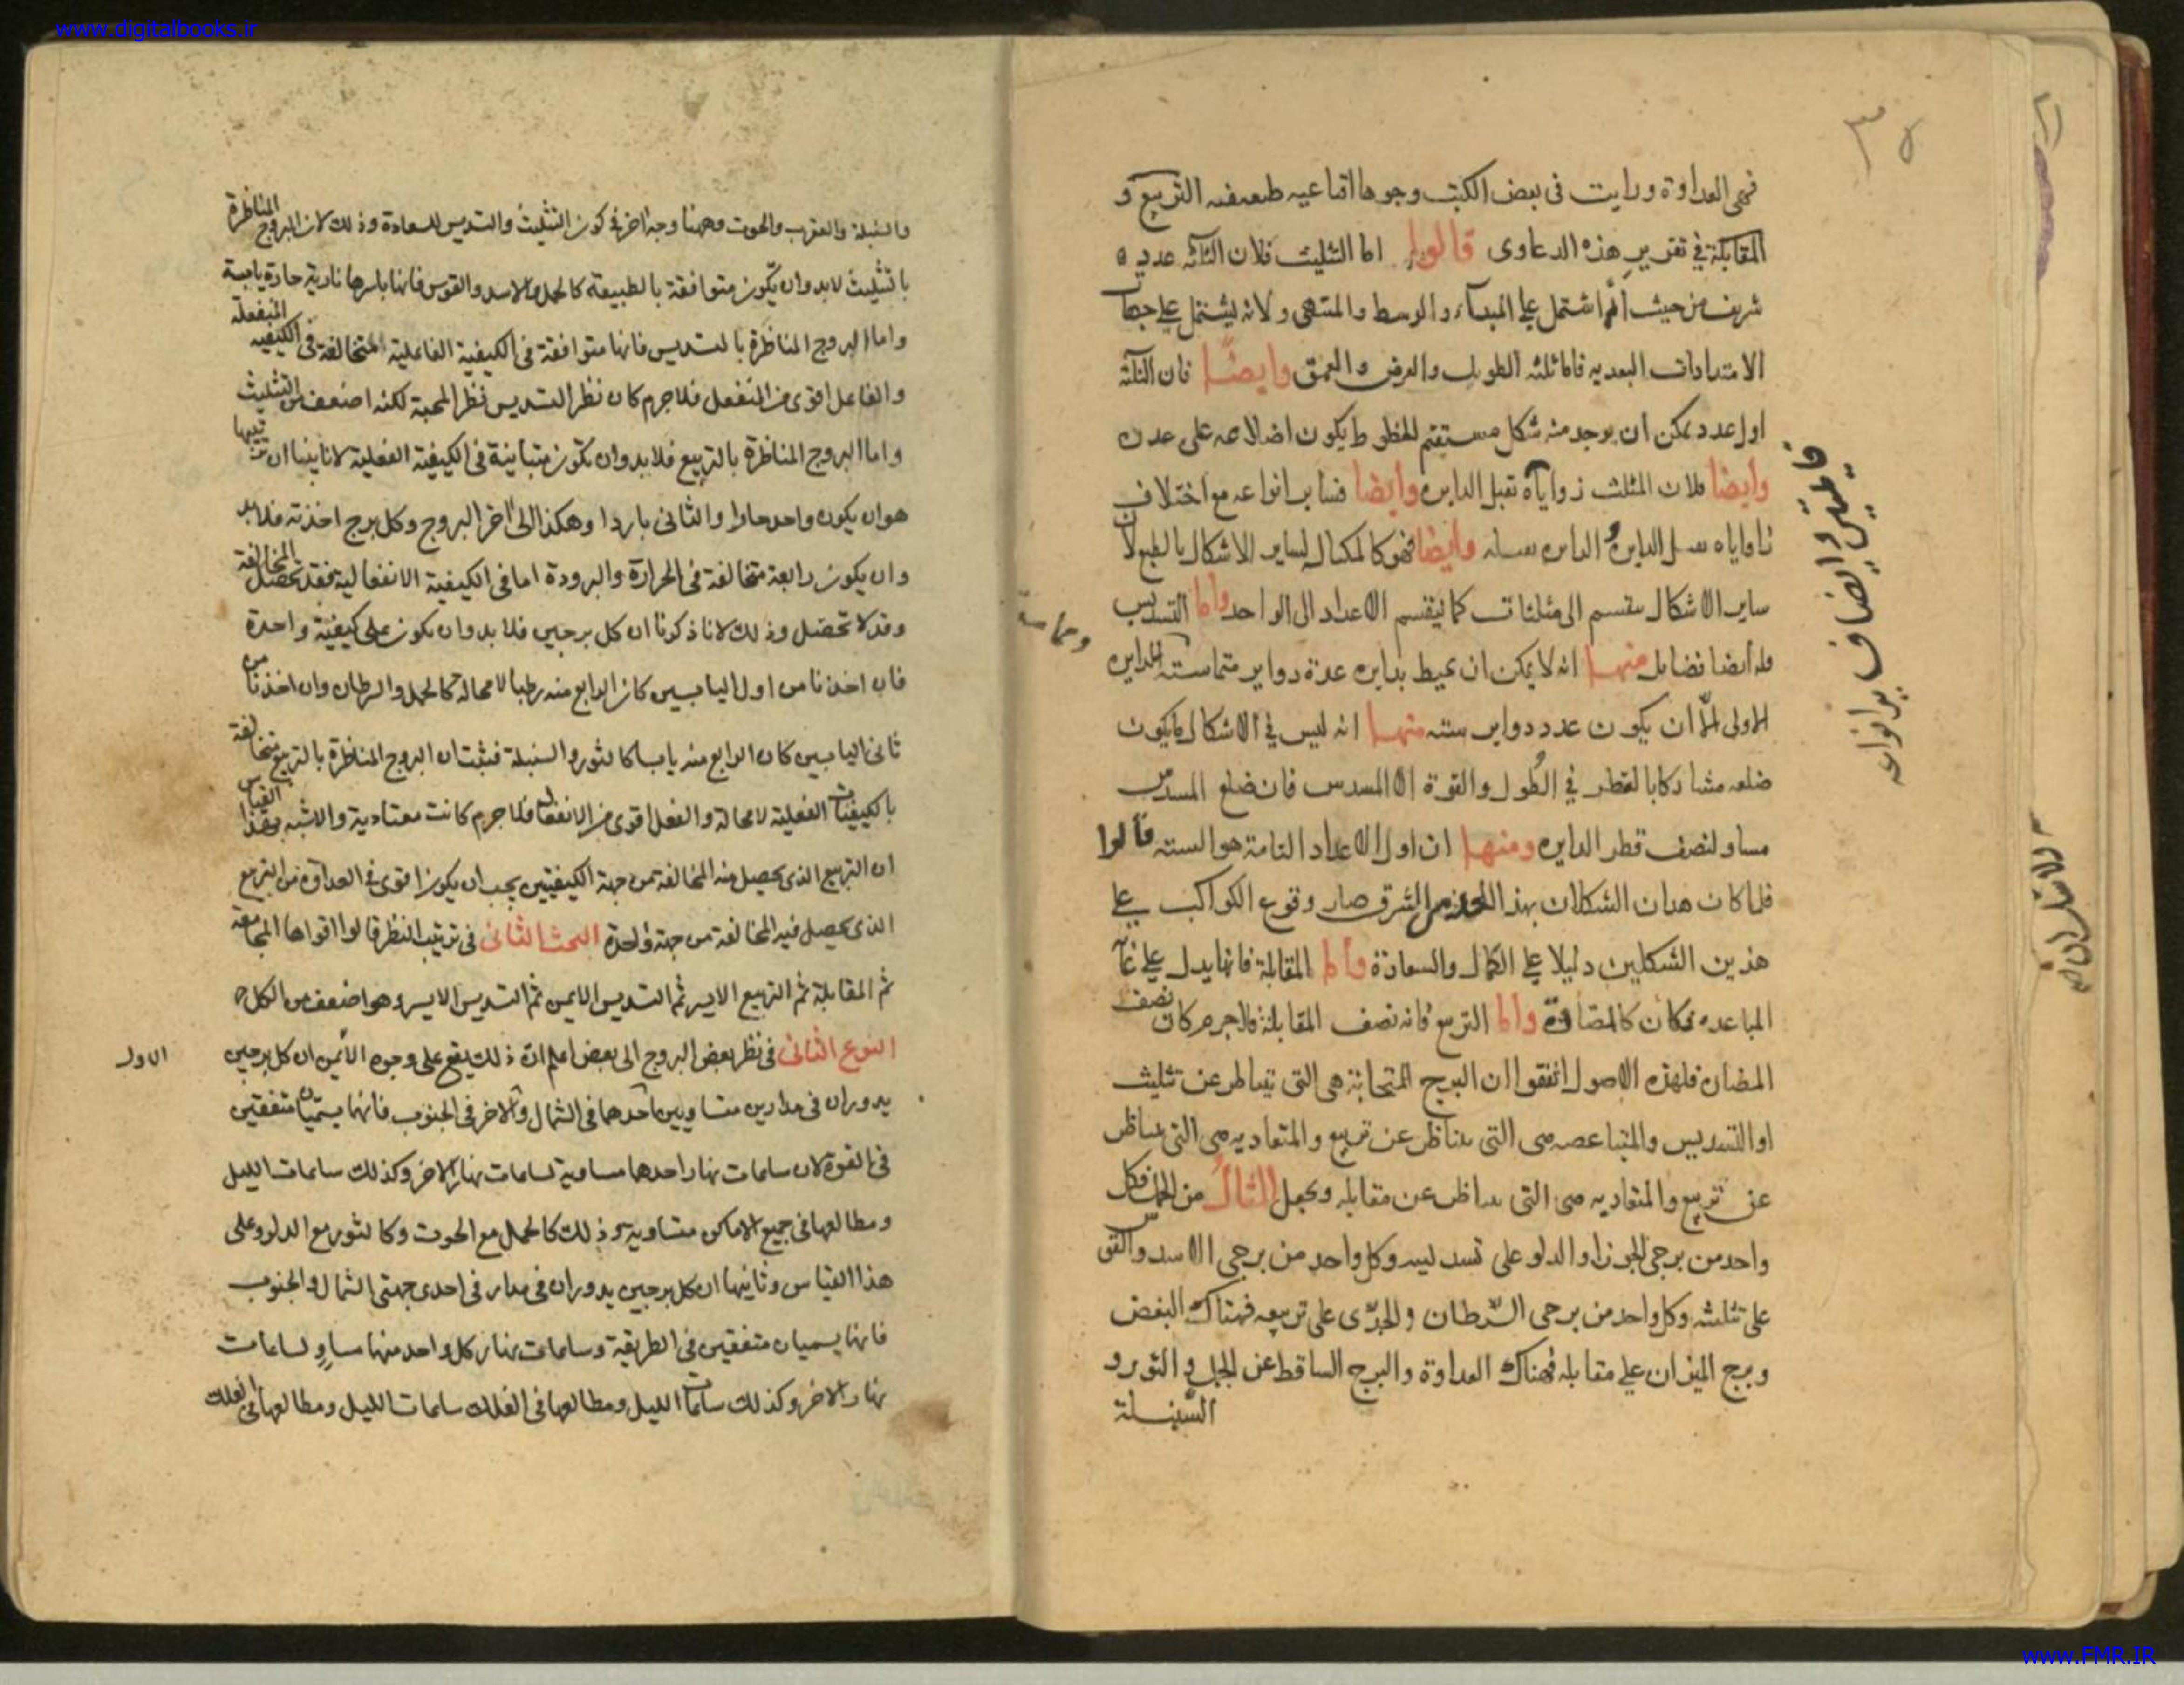 www.digitalbooks.ir
٣٥
فهى العداوة ورايت فى بعض الكتب وجوها اقناعيه التربيع و
المقابلة فى تقرير هذه الدعاوى قالوا اما التثليث فلان الثلثه عدد
شريف من حيث انه اشتمل على المبدا والوسط والمنتهى ولانه يشتمل على جهات
الامتدادات البعديه فانها ثلثه الطول والعرض والعمق وايضا فان الثلثة
اول عدد يمكن ان يوجد منه شكل مستقيم الخطوط يكون اضلاعه على عدده
وايضا فلان المثلث زواياه تقبل الدايره وايضا فساير انواعه مع اختلاف
زواياه الدايره و الدايره وايضا فهو كالمكيال لساير الاشكال بالطبع لان
ساير الاشكال ينقسم الى مثلثات كما ينقسم الاعداد الى الواحد واما التسديس
فله ايضا فضايل منها انه لا يمكن ان يحيط بدايره عدة دواير متماسته للدايره
الاولى الا ان يكون عدد دواير سته منها انه ليس فى الاشكال ما يكون
ضلعه مشاركا بالقطر فى الطول والقوة الا المسدس فان ضلع المسدس
مساو لنصف قطر الدايره ومنها ان اول الاعداد التامة هو السته قالوا
فلما كان هذان الشكلان بهذا الشرف صار وقوع الكواكب على
هذين الشكلين دليلا على الكمال والسعادة واما المقابلة فانها يدل على غاية
المباعده فكان كالمضادة واما التربيع فانه نصف المقابلة فلاجرم كان نصف
المضادة فلهذه الاصول اتفقوا ان البروج المتحابة هى التى تتناظر عن تثليث
او التسديس والمتباغضه هى التى يتناظر عن تربيع والمتعاديه هى التى يتناظر
عن تربيع والمتعاديه هى التى يتناظر عن مقابله ويجعل المثال من الحمل فكل
واحد من برجى الجوزا والدلو على تسديسه وكل واحد من برجى الاسد والقوس
على تثليثه وكل واحد من برجى السرطان والجدى على تربيعه فهناك البغض
وبرج الميزان على مقابله فهناك العداوة والبرج الساقط عن الحمل و الثور و
السنبلة
والسنبلة والعقرب والحوت وههنا وجه اخر فى كون التثليث والتسديس للسعادة وذلك لان البروج المتناظرة
بالتثليث لا بد وان يكون متوافقة بالطبيعة كالحمل والاسد والقوس فانها باسرها نارية حارة يابسة
واما البروج المتناظرة بالتسديس فانها متوافقة فى الكيفية الفاعلية المتخالفة فى الكيفيه المنفعلة
والفاعل اقوى من المنفعل فلاجرم كان نظر التسديس نظر المحبة لكنه اضعف من التثليث
واما البروج المتناظرة بالتربيع فلا بد وان تكون متباينة فى الكيفية الفعلية لانا بينا ان ترتيبها
هو ان يكون واحد حارا والثانى باردا وهكذا الى اخر البروج وكل برج اخذته فلا بد
وان يكون رابعة متخالفة فى الحرارة والبرودة اما فى الكيفية الانفعالية فقد تحصل المخالفة
وقد لا تحصل وذلك لانا ذكرنا ان كل برجين فلا بد وان يكون على كيفية واحدة
فان اخذنا من اول اليابسين كان الرابع منه رطبا لا محالة كالحمل والسرطان وان اخذنا من
ثانى اليابسين كان الرابع منه يابسا كالثور والسنبلة فثبت ان البروج المتناظرة بالتربيع متخالفة
بالكيفيات الفعلية لا محالة والفعل اقوى من الانفعال فلاجرم كانت متعادية والاشبه بهذا القياس
ان التربيع الذى يحصل منه المخالفة من جهة الكيفيتين يجب ان يكون اقوى فى العداوة من التربيع
الذى يحصل فيه المخالفة من جهة واحدة البحث الثانى فى ترتيب النظر قالوا اقواها المجامعة
ثم المقابلة ثم التربيع الايسر ثم التسديس الايمن ثم التسديس الايسر وهو اضعف من الكل
النوع الثانى فى نظر بعض البروج الى بعض اعلم ان ذلك يقع على وجوه الاول ان كل برجين
يدوران فى مدارين متساويين احدهما فى الشمال والاخر فى الجنوب فانهما يسميان متفقين
فى القوة لان ساعات نهار احدهما مساوية لساعات نهار الاخر وكذلك ساعات الليل
ومطالعها فى جميع الاماكن متساوية وذلك كالحمل مع الحوت وكالثور مع الدلو وعلى
هذا القياس وثانيها ان كل برجين يدوران فى مدار فى احدى جهتى الشمال والجنوب
فانهما يسميان متفقين فى الطريقة وساعات نهار كل واحد منهما مساو لساعات
نهار الاخر وكذلك ساعات الليل ومطالعها فى الفلك ساعات الليل ومطالعها فى الفلك
الاول
www.FMR.IR